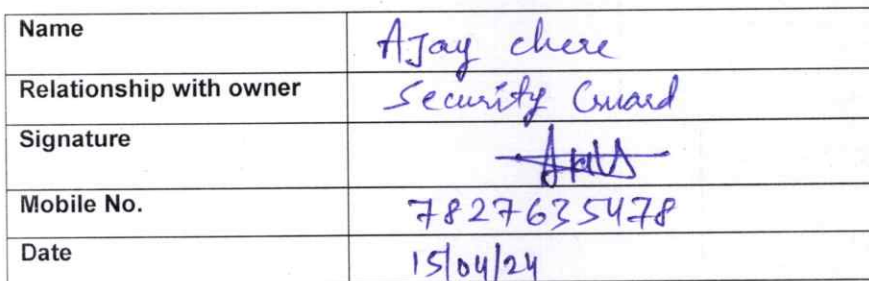 Name AJay chere
Relationship with owner Security Guard
Signature
Mobile No. 7827635478
Date 15/04/24